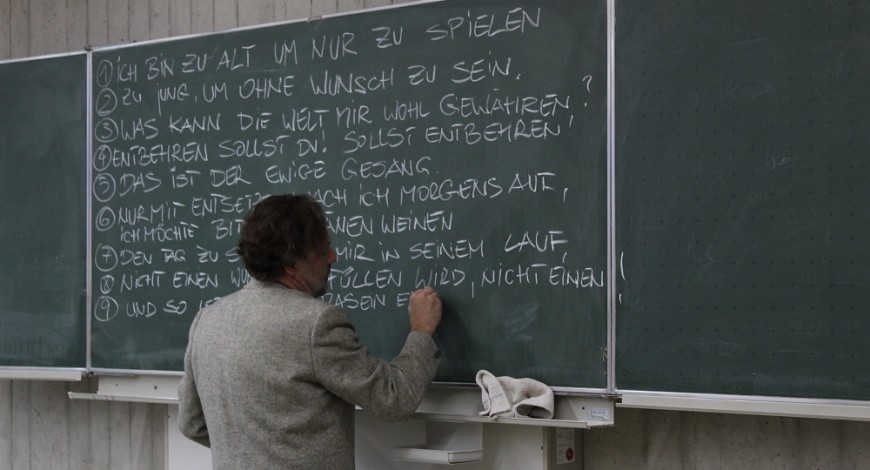 ① ICH BIN ZU ALT UM NUR ZU SPIELEN
② ZU JUNG, UM OHNE WUNSCH ZU SEIN.
③ WAS KANN DIE WELT MIR WOHL GEWÄHREN?
④ ENTBEHREN SOLLST DU! SOLLST ENTBEHREN!
⑤ DAS IST DER EWIGE GESANG
⑥ NUR MIT ENTSETZ ACH ICH MORGENS AUF,
ICH MÖCHTE BIT ÄNEN WEINEN
⑦ DEN TAG ZU S MIR IN SEINEM LAUF,
⑧ NICHT EINEN WU FÜLLEN WIRD, NICHT EINEN
⑨ UND SO IS DASEIN E